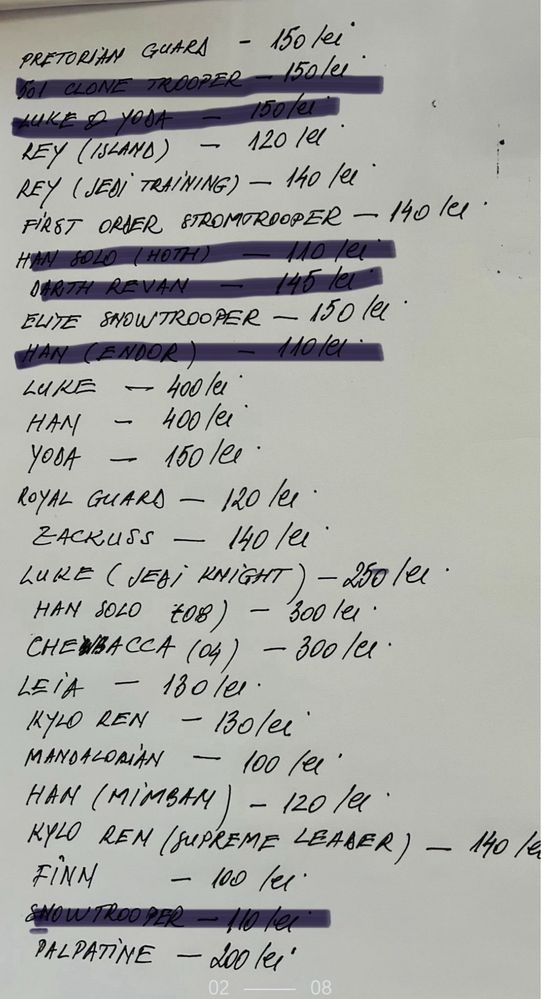 PRETORIAN GUARD - 150 lei
501 CLONE TROOPER - 150 lei
LUKE & YODA - 150 lei
REY (ISLAND) - 120 lei
REY (JEDI TRAINING) - 140 lei
FIRST ORDER STROMTROOPER - 140 lei
HAN SOLO (HOTH) - 110 lei
DARTH REVAN - 145 lei
ELITE SNOWTROOPER - 150 lei
HAN (ENDOR) - 110 lei
LUKE - 400 lei
HAN - 400 lei
YODA - 150 lei
ROYAL GUARD - 120 lei
ZACKUSS - 140 lei
LUKE (JEDI KNIGHT) - 250 lei
HAN SOLO - 300 lei
CHEWBACCA (04) - 300 lei
LEIA - 130 lei
KYLO REN - 130 lei
MANDALORIAN - 100 lei
HAN (MIMBAN) - 120 lei
KYLO REN (SUPREME LEADER) - 140 lei
FINN - 100 lei
SNOWTROOPER - 110 lei
PALPATINE - 200 lei
02 — 08